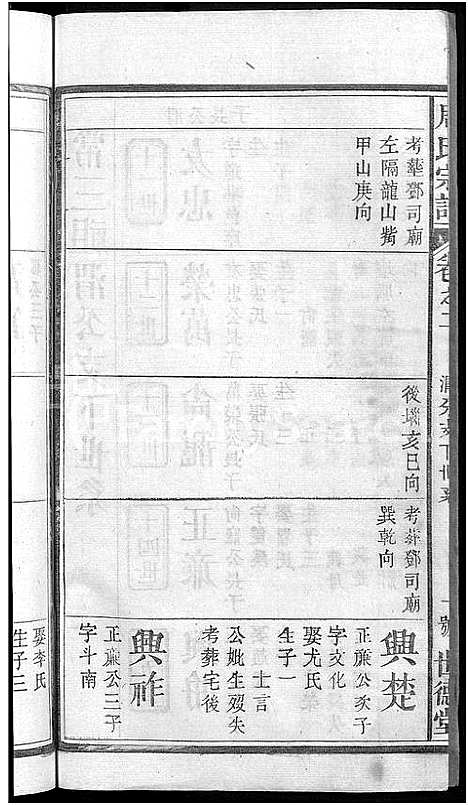 周氏宗譜
卷之二
潤公支下世系
一號
世德堂
考塟鄧司廟
左隔龍山觜
甲山庚向
後墣亥巳向
考葬鄧司廟
巽乾向
興楚
正廉公次子
字文化
娶尤氏
生子一
士言
公妣生殁失
考葬宅後
興祚
正廉公三子
字斗南
娶李氏
生子三